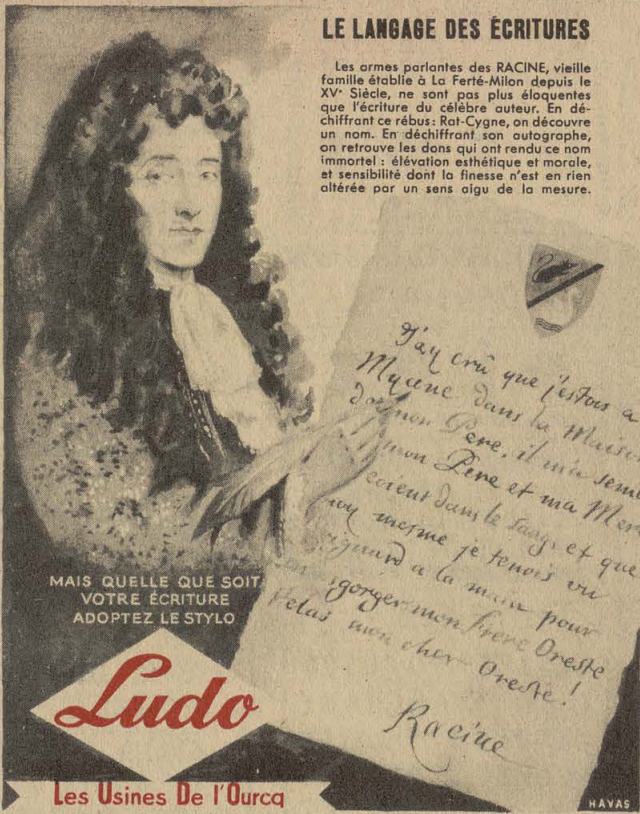 LE LANGAGE DES ÉCRITURES
Les armes parlantes des RACINE, vieille
famille établie à La Ferté-Milon depuis le
XVᵉ Siècle, ne sont pas plus éloquentes
que l'écriture du célèbre auteur. En dé-
chiffrant ce rébus : Rat-Cygne, on découvre
un nom. En déchiffrant son autographe,
on retrouve les dons qui ont rendu ce nom
immortel : élévation esthétique et morale,
et sensibilité dont la finesse n'est en rien
altérée par un sens aigu de la mesure.
J'ay crû que j'estois a
Mycene dans la Maiso
mon Pere, il m'a sem
mon Pere et ma Mer
dans le sang, et que
mesme je tenois un
a la main pour
egorger mon Frere Oreste
Helas mon cher Oreste!
Racine
MAIS QUELLE QUE SOIT
VOTRE ÉCRITURE
ADOPTEZ LE STYLO
Ludo
Les Usines De l'Ourcq
HAVAS